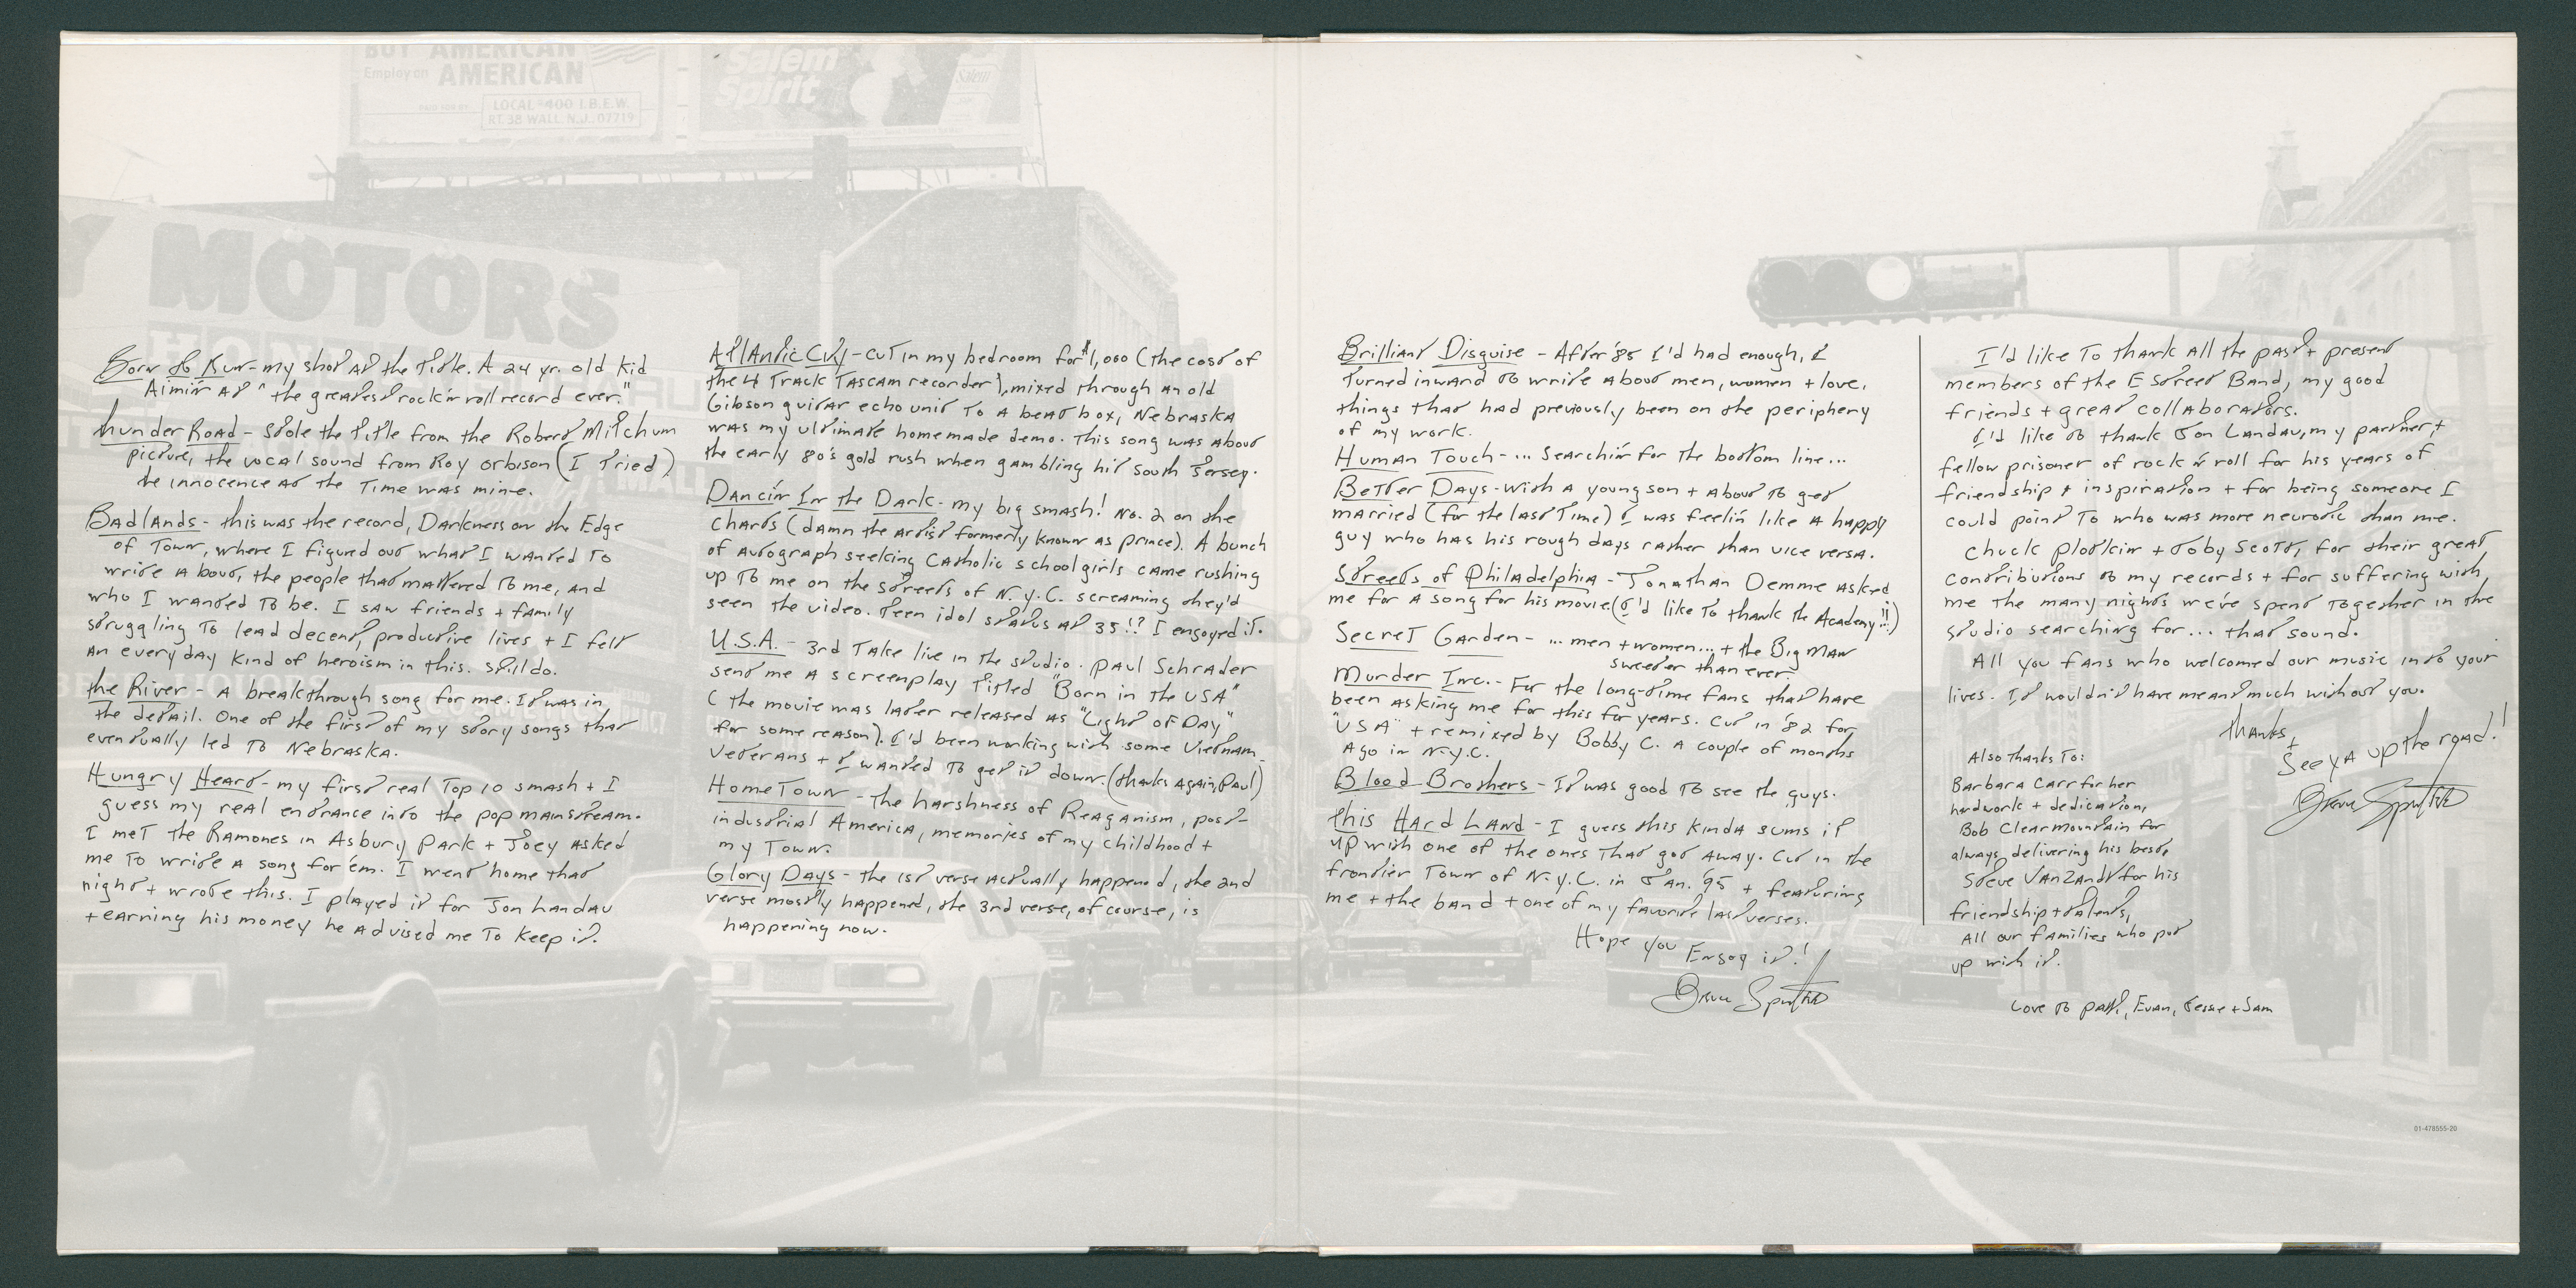 BUY AMERICAN
Employ an AMERICAN
PAID FOR BY
LOCAL #400 I.B.E.W.
RT. 38 WALL, N.J. 07719
Salem
spirit
Salem
Y MOTORS
Born to Run - my shot at the title. A 24 yr. old kid
Aimin' at "the greatest rock 'n roll record ever."
thunder Road - Stole the title from the Robert Mitchum
picture, the vocal sound from Roy Orbison (I Tried)
the innocence at the Time was mine.
Badlands - this was the record, Darkness on the Edge
of Town, where I figured out what I wanted to
write about, the people that mattered to me, and
who I wanted to be. I saw friends + family
struggling to lead decent, productive lives + I felt
an everyday kind of heroism in this. Still do.
the River - A breakthrough song for me. It was in
the detail. One of the first of my story songs that
eventually led to Nebraska.
Hungry Heart - my first real Top 10 smash + I
guess my real entrance into the pop mainstream.
I met the Ramones in Asbury Park + Joey asked
me to write a song for 'em. I went home that
night + wrote this. I played it for Jon Landau
+ earning his money he advised me to keep it.
Atlantic City - cut in my bedroom for $1,000 (the cost of
the 4 Track Tascam recorder), mixed through an old
Gibson guitar echo unit to a beat box, Nebraska
was my ultimate homemade demo. This song was about
the early 80's gold rush when gambling hit south Jersey.
Dancin' In the Dark - my big smash! No. 2 on the
charts (damn the artist formerly known as prince). A bunch
of autograph seeking Catholic schoolgirls came rushing
up to me on the streets of N.Y.C. screaming they'd
seen the video. Teen idol status at 35!? I enjoyed it.
U.S.A. - 3rd Take live in the studio. Paul Schrader
sent me a screenplay titled "Born in the USA"
(the movie was later released as "Light of Day"
for some reason). I'd been working with some Vietnam
Veterans + I wanted to get it down. (thanks again, Paul)
HomeTown - the harshness of Reaganism, post-
industrial America, memories of my childhood +
my Town.
Glory Days - the 1st verse actually happened, the 2nd
verse mostly happened, the 3rd verse, of course, is
happening now.
Brilliant Disguise - After '85 I'd had enough, I
turned inward to write about men, women + love,
things that had previously been on the periphery
of my work.
Human Touch - ... Searchin' for the bottom line...
Better Days - With a young son + about to get
married (for the last Time) I was feelin' like a happy
guy who has his rough days rather than vice versa.
Streets of Philadelphia - Jonathan Demme asked
me for a song for his movie (I'd like to thank the Academy!!...)
Secret Garden - ... men + women... + the Big Man
sweeter than ever.
Murder Inc. - For the long-time fans that have
been asking me for this for years. Cut in '82 for
"USA" + remixed by Bobby C. a couple of months
ago in N.Y.C.
Blood Brothers - It was good to see the guys.
this Hard Land - I guess this kinda sums it
up with one of the ones that got away. Cut in the
frontier Town of N.Y.C. in Jan. '95 + featuring
me + the band + one of my favorite last verses.
Hope you Enjoy it!
Bruce Springsteen
I'd like to thank all the past + present
members of the E Street Band, my good
friends + great collaborators.
I'd like to thank Jon Landau, my partner +
fellow prisoner of rock 'n roll for his years of
friendship + inspiration + for being someone I
could point to who was more neurotic than me.
Chuck Plotkin + Toby Scott, for their great
contributions to my records + for suffering with
me the many nights we've spent together in the
studio searching for... that sound.
All you fans who welcomed our music into your
lives. It wouldn't have meant much without you.
thanks,
+
See ya up the road!
Bruce Springsteen
Also thanks to:
Barbara Carr for her
hardwork + dedication,
Bob Clearmountain for
always delivering his best,
Steve Van Zandt for his
friendship + talents,
All our families who put
up with it.
Love to Patti, Evan, Jessie + Sam
01-478555-20